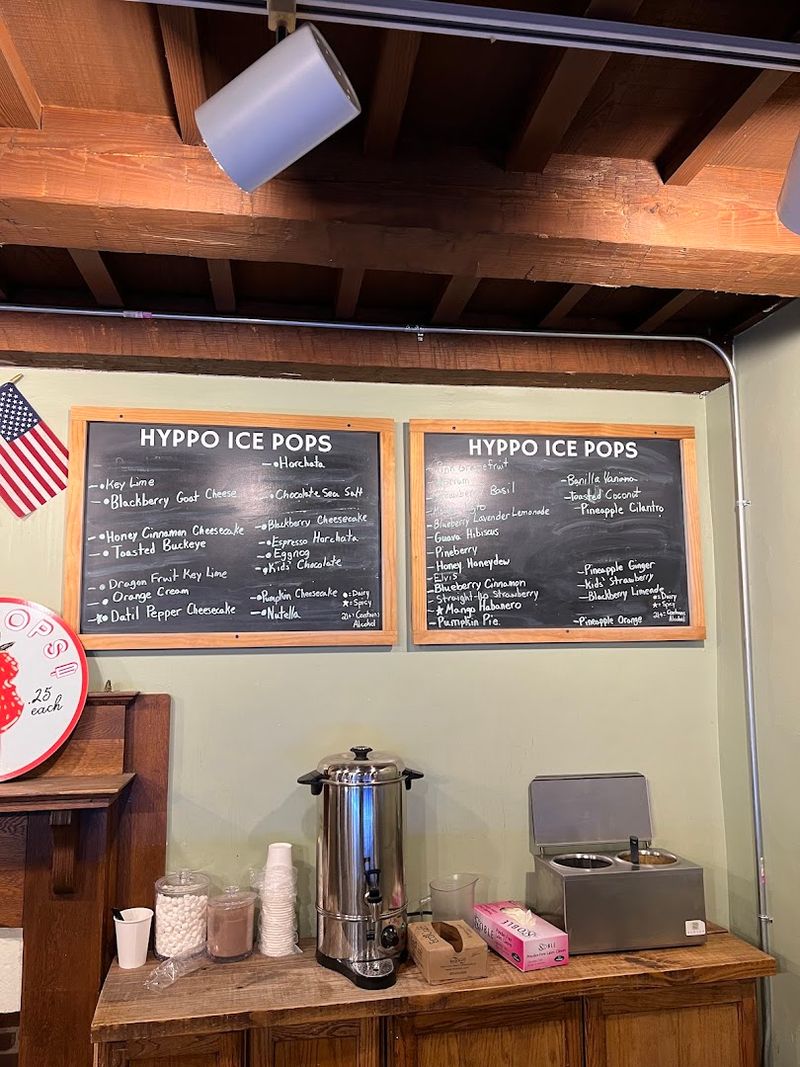 HYPPO ICE POPS
Key Lime
Blackberry Goat Cheese
Honey Cinnamon Cheesecake
Toasted Buckeye
Dragon Fruit Key Lime
Orange Cream
Datil Pepper Cheesecake
Horchata
Chocolate Sea Salt
Blackberry Cheesecake
Espresso Horchata
Eggnog
Kids' Chocolate
Pumpkin Cheesecake
Nutella
●: Dairy
★: Spicy
21+: Contains
Alcohol
HYPPO ICE POPS
Pink Grapefruit
Strawberry Basil
Blueberry Lavender Lemonade
Guava Hibiscus
Pineberry
Honey Honeydew
Elvis
Blueberry Cinnamon
Straight-Up Strawberry
★ Mango Habanero
Pumpkin Pie
Banilla Vanana
Toasted Coconut
Pineapple Cilantro
Pineapple Ginger
Kids' Strawberry
Blackberry Limeade
Pineapple Orange
●: Dairy
★: Spicy
21+: Contains
Alcohol
OPS!
.25
each
NOBLE